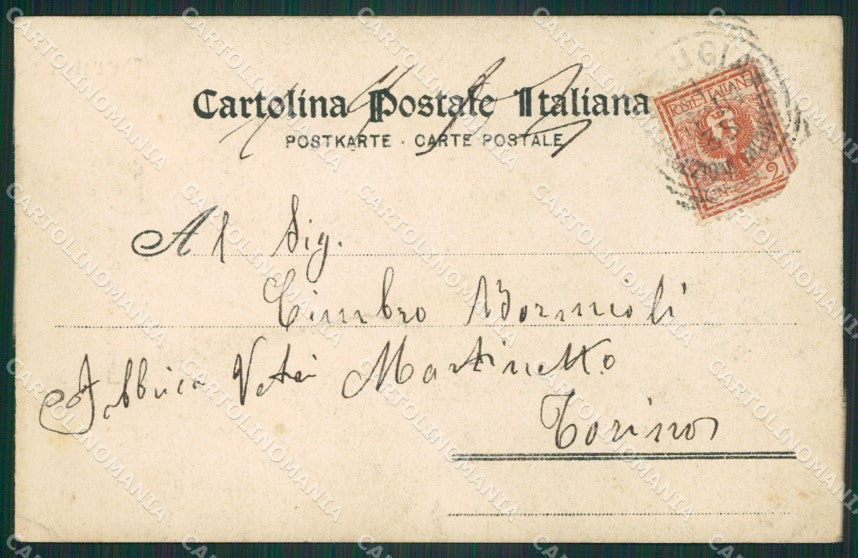 Cartolina Postale Italiana
POSTKARTE · CARTE POSTALE
POSTE ITALIANE
2
Al Sig.
Cimbro Bormioli
Fabbrica Vetri Martinetto
Torino
CARTOLINOMANIA